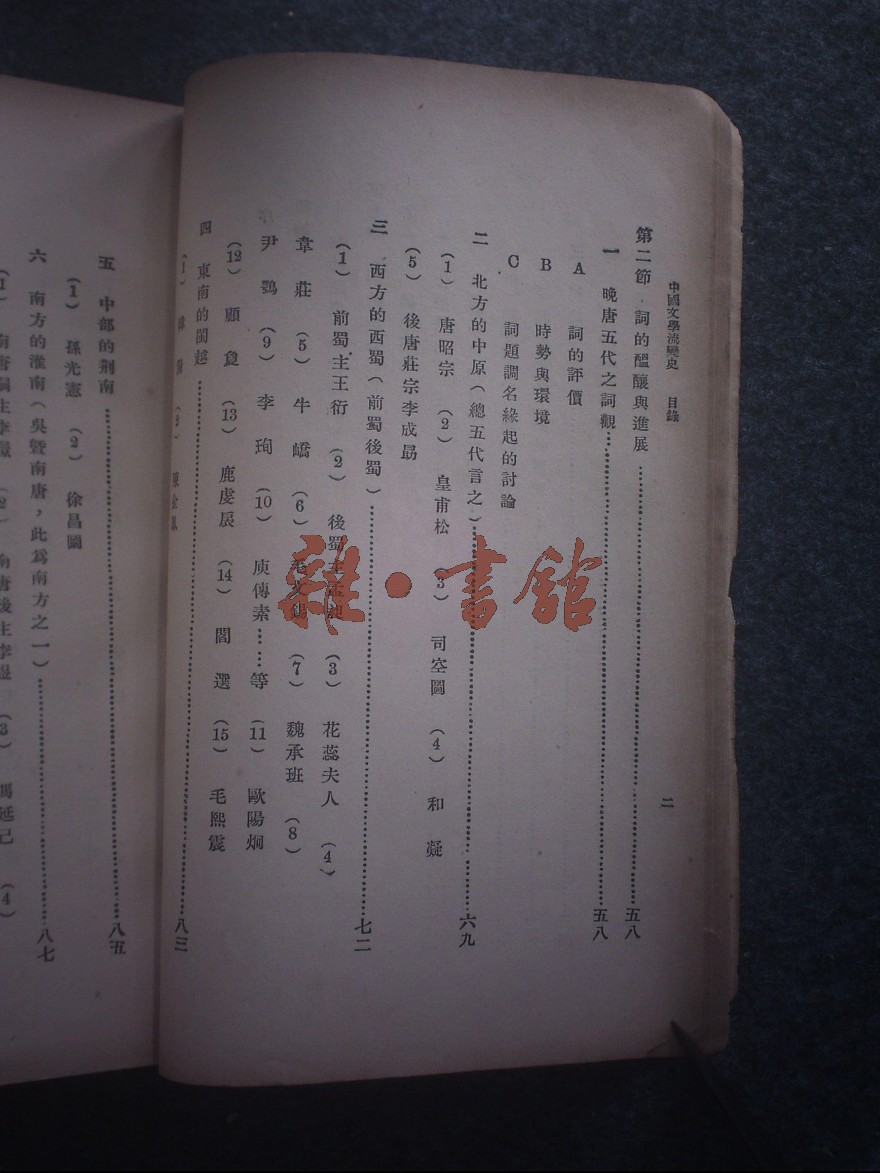 中國文學流變史　目錄　二
第二節　詞的醞釀與進展……五八
一　晚唐五代之詞觀……五八
A　詞的評價
B　時勢與環境
C　詞題調名緣起的討論
二　北方的中原（總五代言之）……六九
（1）唐昭宗　（2）皇甫松　（3）司空圖　（4）和凝
（5）後唐莊宗李成勗
三　西方的西蜀（前蜀後蜀）……七二
（1）前蜀主王衍　（2）後蜀主孟昶　（3）花蕊夫人　（4）
韋莊　（5）牛嶠　（6）毛文錫　（7）魏承班　（8）
尹鶚　（9）李珣　（10）庾傳素……等　（11）歐陽炯
（12）顧敻　（13）鹿虔扆　（14）閻選　（15）毛熙震
四　東南的閩越……八三
（1）韓偓　（2）陳金鳳
五　中部的荊南……八五
（1）孫光憲　（2）徐昌圖
六　南方的淮南（吳暨南唐，此爲南方之一）……八七
（1）南唐嗣主李　（2）南唐後主李煜　（3）馮延己　（4）
雜·書館